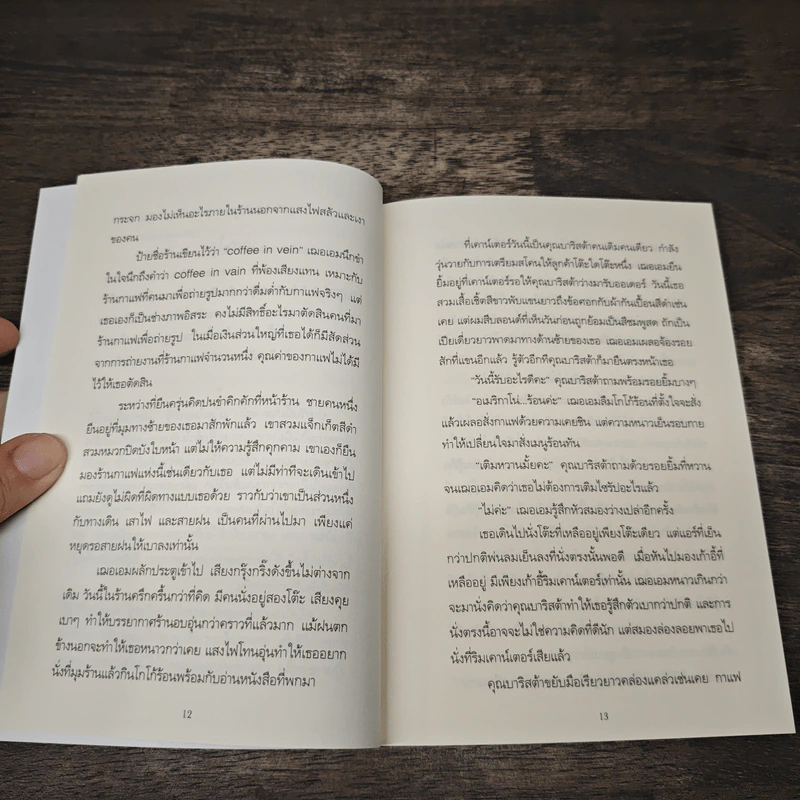 กระจก มองไม่เห็นอะไรภายในร้านนอกจากแสงไฟสลัวและเงา
ของคน
ป้ายชื่อร้านเขียนไว้ว่า “coffee in vein” เฌอเอมนึกขำ
ในใจนึกถึงคำว่า coffee in vain ที่พ้องเสียงแทน เหมาะกับ
ร้านกาแฟที่คนมาเพื่อถ่ายรูปมากกว่าดื่มด่ำกับกาแฟจริงๆ แต่
เธอเองก็เป็นช่างภาพอิสระ คงไม่มีสิทธิ์อะไรมาตัดสินคนที่มา
ร้านกาแฟเพื่อถ่ายรูป ในเมื่อเงินส่วนใหญ่ที่เธอได้ก็มีสัดส่วน
จากการถ่ายงานที่ร้านกาแฟจำนวนหนึ่ง คุณค่าของกาแฟไม่ได้มี
ไว้ให้เธอตัดสิน
ระหว่างที่ยืนครุ่นคิดปนขำคิกคักที่หน้าร้าน ชายคนหนึ่ง
ยืนอยู่ที่มุมทางซ้ายของเธอมาสักพักแล้ว เขาสวมแจ็กเก็ตสีดำ
สวมหมวกปิดบังใบหน้า แต่ไม่ให้ความรู้สึกคุกคาม เขาเองก็ยืน
มองร้านกาแฟแห่งนี้เช่นเดียวกับเธอ แต่ไม่มีท่าทีจะเดินเข้าไป
แถมยังดูไม่ผิดที่ผิดทางแบบเธอด้วย ราวกับว่าเขาเป็นส่วนหนึ่ง
กับทางเดิน เสาไฟ และสายฝน เป็นคนที่ผ่านไปมา เพียงแค่
หยุดรอสายฝนให้เบาลงเท่านั้น
เฌอเอมผลักประตูเข้าไป เสียงกรุ๊งกริ๊งดังขึ้นไม่ต่างจาก
เดิม วันนี้ในร้านครึกครื้นกว่าที่คิด มีคนนั่งอยู่สองโต๊ะ เสียงคุย
เบาๆ ทำให้บรรยากาศร้านอบอุ่นกว่าคราวที่แล้วมาก แม้ฝนตก
ข้างนอกจะทำให้เธอหนาวกว่าเคย แสงไฟโทนอุ่นทำให้เธออยาก
นั่งที่มุมร้านแล้วกินโกโก้ร้อนพร้อมกับอ่านหนังสือที่พกมา
12
ที่เคาน์เตอร์วันนี้เป็นคุณบาริสต้าคนเดิมคนเดียว กำลัง
วุ่นวายกับการเตรียมสโคนให้ลูกค้าโต๊ะใดโต๊ะหนึ่ง เฌอเอมยืน
ยิ้มอยู่ที่เคาน์เตอร์รอให้คุณบาริสต้าว่างมารับออเดอร์ วันนี้เธอ
สวมเสื้อเชิ้ตสีขาวพับแขนยาวถึงข้อศอกกับผ้ากันเปื้อนสีดำเช่น
เคย แต่ผมสีบลอนด์ที่เห็นวันก่อนถูกย้อมเป็นสีชมพูสด ถักเป็น
เปียเดี่ยวยาวพาดมาทางด้านซ้ายของเธอ เฌอเอมเผลอจ้องรอย
สักที่แขนอีกแล้ว รู้ตัวอีกทีคุณบาริสต้าก็มายืนตรงหน้าเธอ
“วันนี้รับอะไรดีคะ” คุณบาริสต้าถามพร้อมรอยยิ้มบางๆ
“อเมริกาโน่...ร้อนค่ะ” เฌอเอมลืมโกโก้ร้อนที่ตั้งใจจะสั่ง
แล้วเผลอสั่งกาแฟด้วยความเคยชิน แต่ความหนาวเย็นรอบกาย
ทำให้เปลี่ยนใจมาสั่งเมนูร้อนทัน
“เติมหวานมั้ยคะ” คุณบาริสต้าถามด้วยรอยยิ้มที่หวาน
จนเฌอเอมคิดว่าเธอไม่ต้องการเติมไซรัปอะไรแล้ว
“ไม่ค่ะ” เฌอเอมรู้สึกหัวสมองว่างเปล่าอีกครั้ง
เธอเดินไปนั่งโต๊ะที่เหลืออยู่เพียงโต๊ะเดียว แต่แอร์ที่เย็น
กว่าปกติพ่นลมเย็นลงที่นั่งตรงนั้นพอดี เมื่อหันไปมองเก้าอี้ที่
เหลืออยู่ มีเพียงเก้าอี้ริมเคาน์เตอร์เท่านั้น เฌอเอมหนาวเกินกว่า
จะมานั่งคิดว่าคุณบาริสต้าทำให้เธอรู้สึกตัวเบากว่าปกติ และการ
นั่งตรงนี้อาจจะไม่ใช่ความคิดที่ดีนัก แต่สมองล่องลอยพาเธอไป
นั่งที่ริมเคาน์เตอร์เสียแล้ว
คุณบาริสต้าขยับมือเรียวยาวคล่องแคล่วเช่นเคย กาแฟ
13